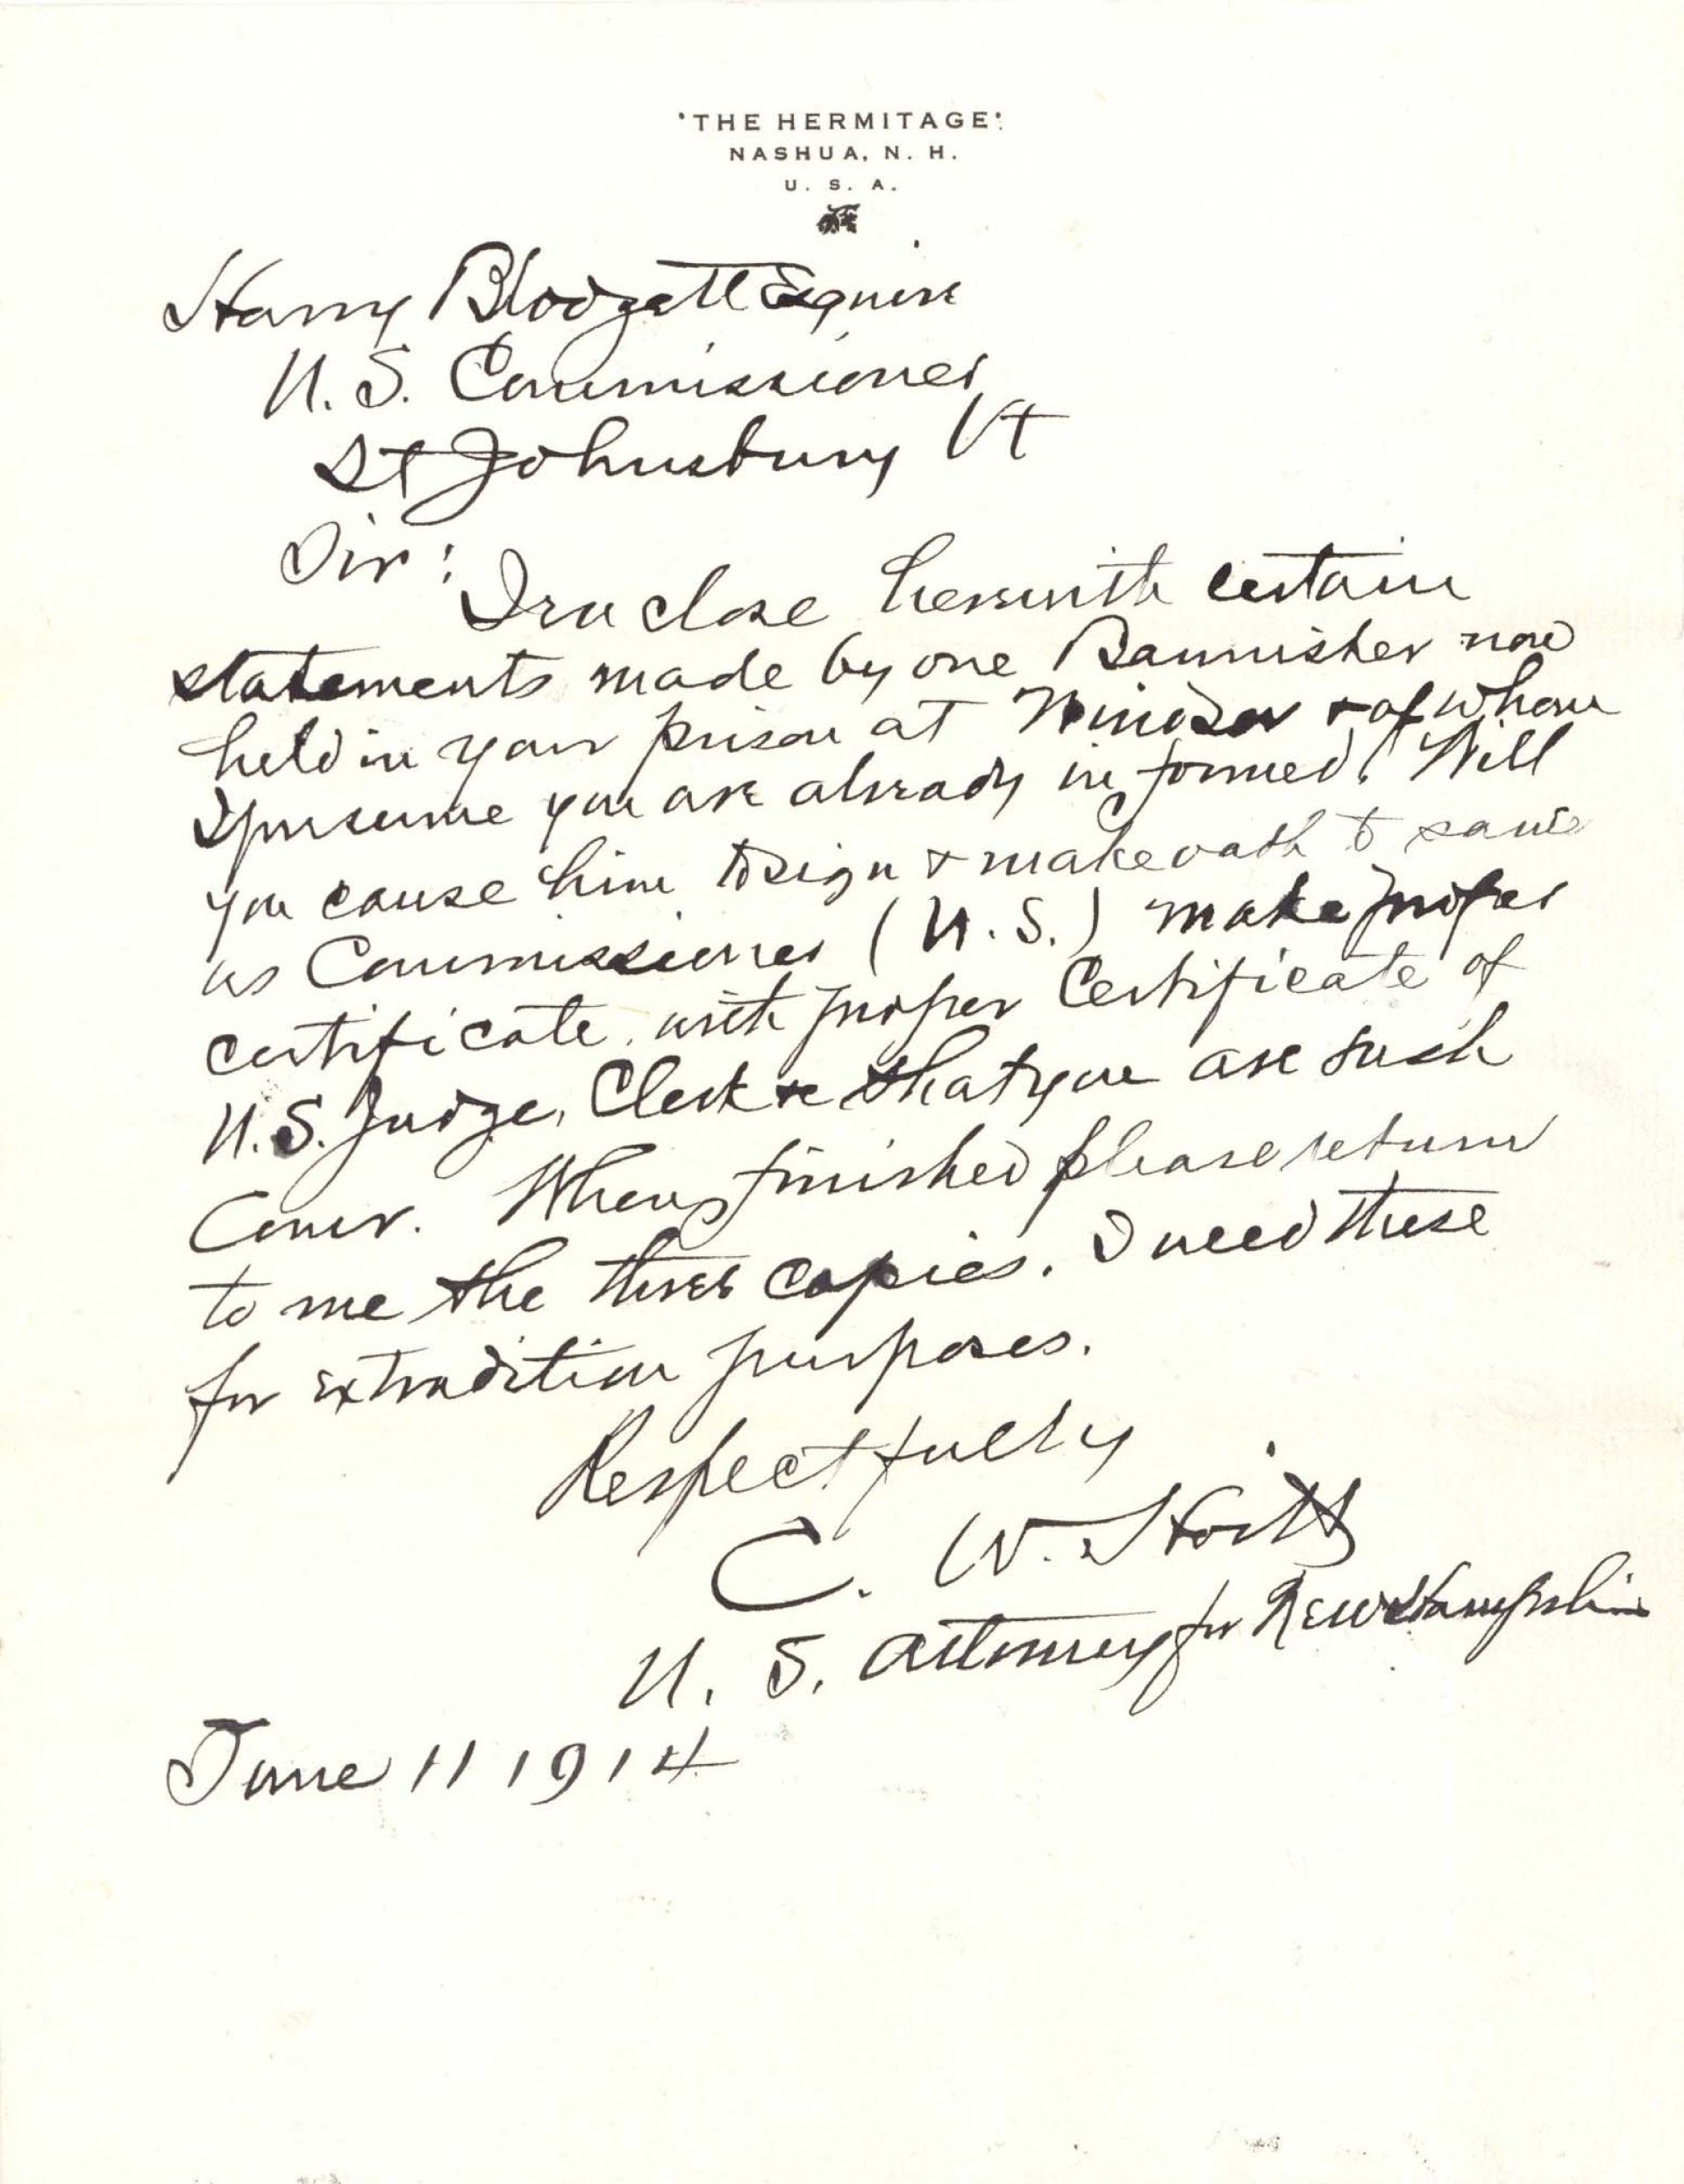 'THE HERMITAGE'.
NASHUA, N. H.
U. S. A.
Harry Blodgett Esquire
U. S. Commissioner
St Johnsbury Vt
Sir:
I enclose herewith certain
statements made by one Bannister now
held in your prison at Windsor & of whom
I presume you are already informed. Will
you cause him to sign & make oath to same
as Commissioner (U. S.) make proper
certificate, with proper Certificate of
U. S. Judge, Clerk &c that you are such
Comr. When finished please return
to me the three copies. I need these
for extradition purposes.
Respectfully
C. W. Hoitt
U. S. Attorney for New Hampshire
June 11 1914